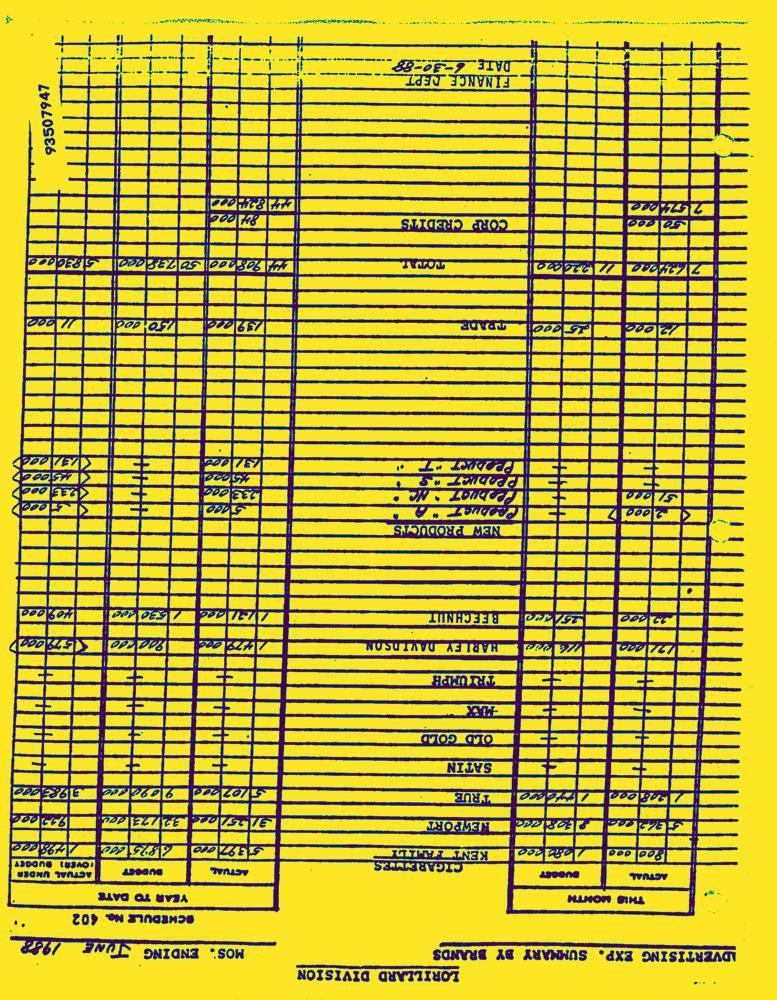 LORILLARD DIVISION
ADVERTISING EXP. SUMMARY BY BRANDS MOS. ENDING JUNE 1988
SCHEDULE No. 402
THIS MONTH YEAR TO DATE
ACTUAL BUDGET CIGARETTES ACTUAL BUDGET ACTUAL UNDER (OVER) BUDGET
800 000 1 080 000 KENT FAMILY 5 397 000 6 895 000 1 498 000
5 362 000 8 308 000 NEWPORT 31 251 000 32 173 000 922 000
1 208 000 1 440 000 TRUE 5 107 000 9 090 000 3 983 000
— — SATIN — — —
— — OLD GOLD — — —
— — MAX — — —
— — TRIUMPH — — —
171 000 116 000 HARLEY DAVIDSON 1 479 000 900 000 <579 000>
22 000 251 000 BEECHNUT 1 121 000 1 530 000 409 000
NEW PRODUCTS
<2 000> — PRODUCT "A" 5 000 — <5 000>
51 000 — PRODUCT "NC" 233 000 — <233 000>
— — PRODUCT "S" 45 000 — <45 000>
— — PRODUCT "T" 131 000 — <131 000>
12 000 25 000 TRADE 139 000 150 000 11 000
7 624 000 11 220 000 TOTAL 44 908 000 50 738 000 5 830 000
50 000 CORP CREDITS 84 000
7 574 000 44 824 000
FINANCE DEPT
DATE 6-30-88
93507947